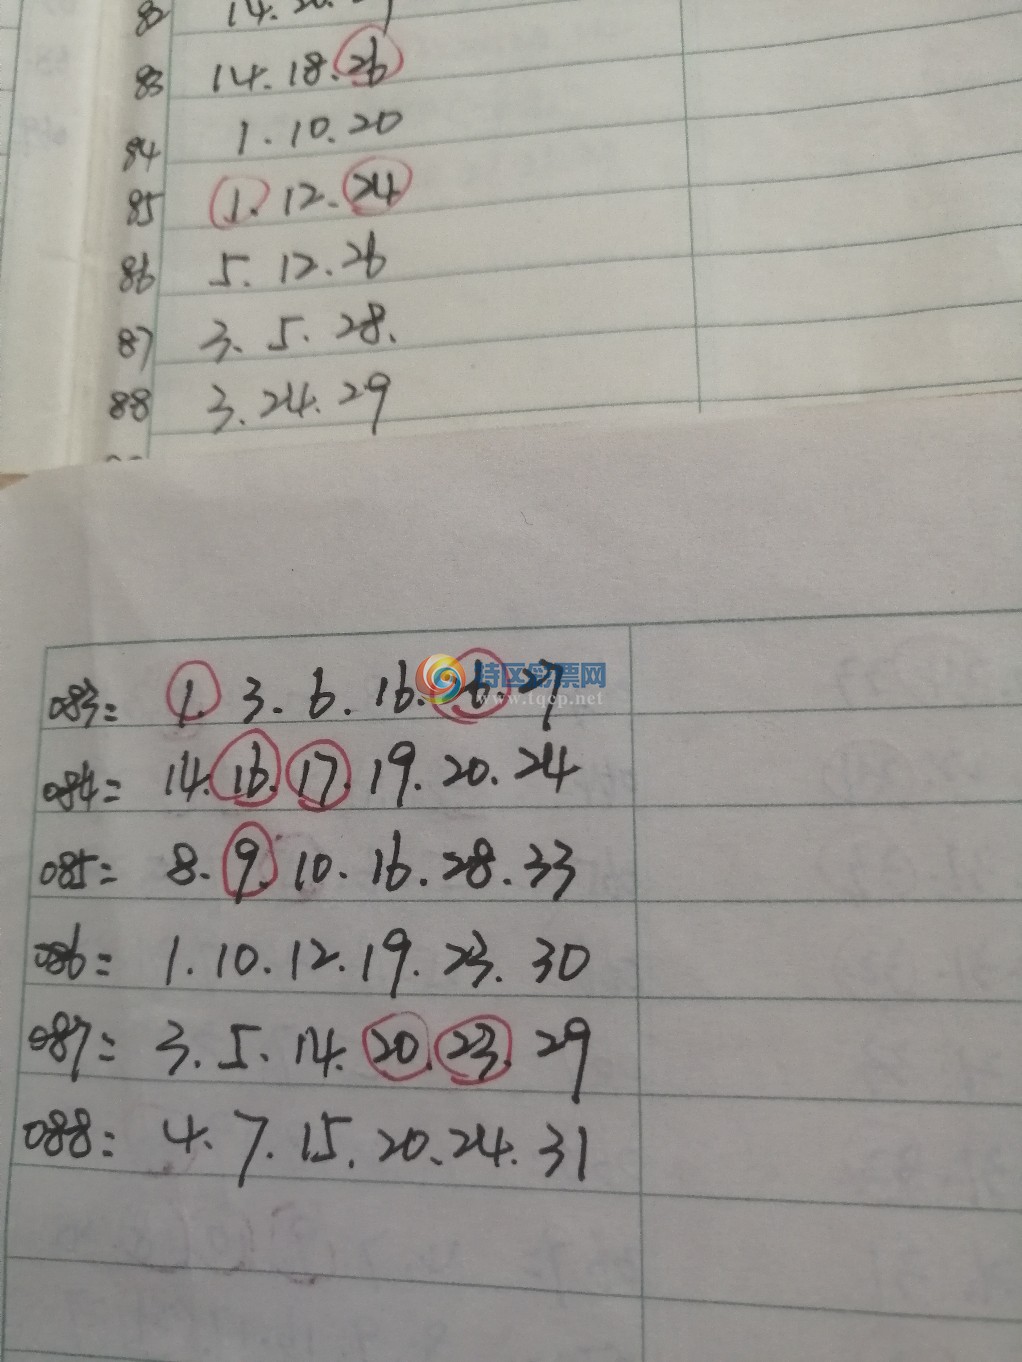 82 14.20.29
83 14.18.26
84 1.10.20
85 1.12.24
86 5.12.26
87 3.5.28.
88 3.24.29
083= 1.3.6.16.26.27
特区彩票网
www.tqcp.net
084= 14.16.17.19.20.24
085= 8.9.10.16.28.33
086= 1.10.12.19.23.30
087= 3.5.14.20.23.29
088= 4.7.15.20.24.31